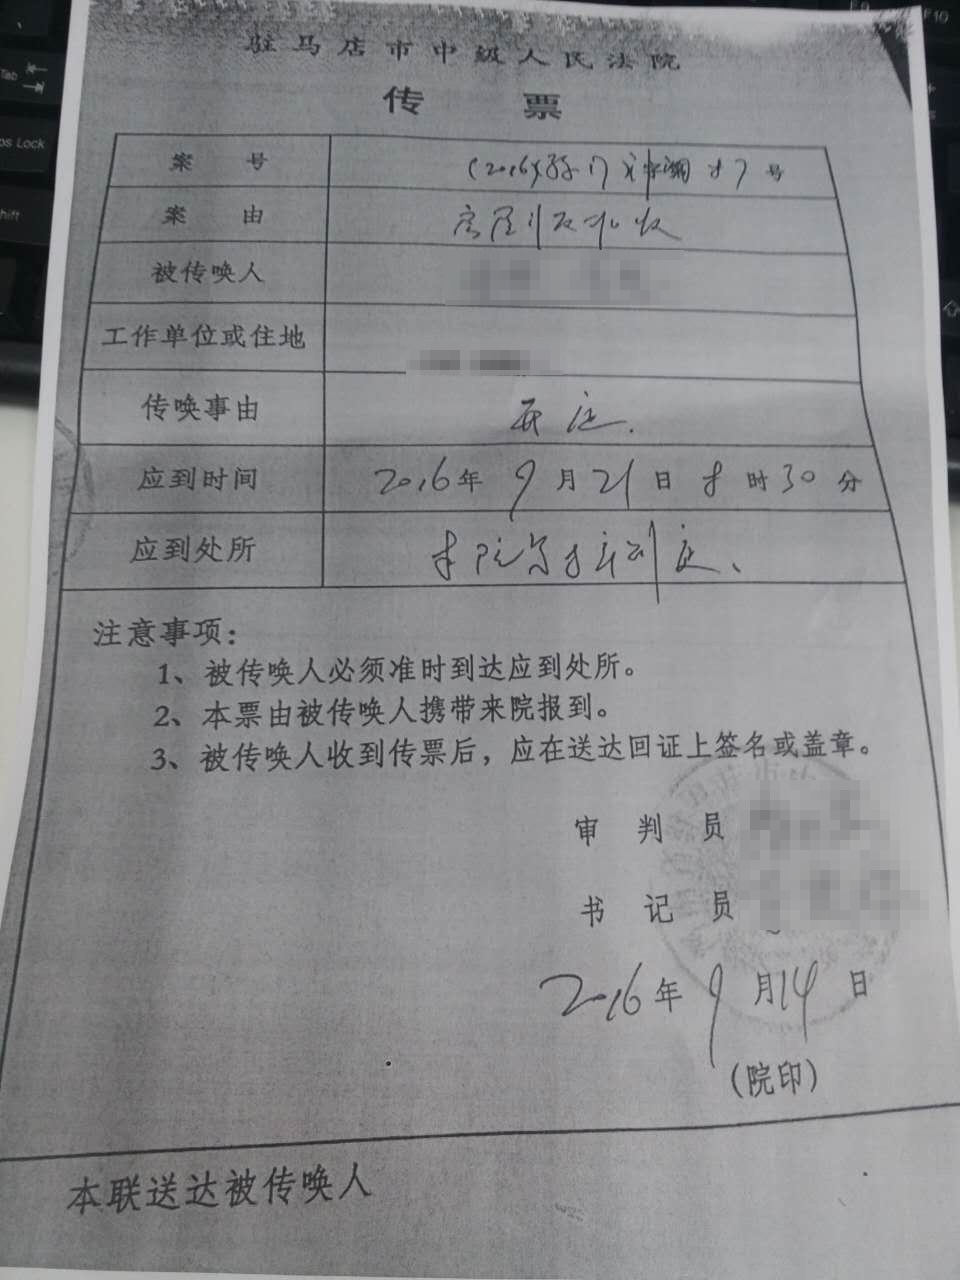 驻马店市中级人民法院
传 票
案 号 (2016) 号
案 由 房屋行政
被传唤人
工作单位或住地
传唤事由 开庭.
应到时间 2016年 9月 21日 8时30分
应到处所 本院 审判庭、
注意事项：
1、被传唤人必须准时到达应到处所。
2、本票由被传唤人携带来院报到。
3、被传唤人收到传票后，应在送达回证上签名或盖章。
审 判 员
书 记 员
2016年 9月14日
(院印)
本联送达被传唤人
Tab
ps Lock
hift
F9
F10